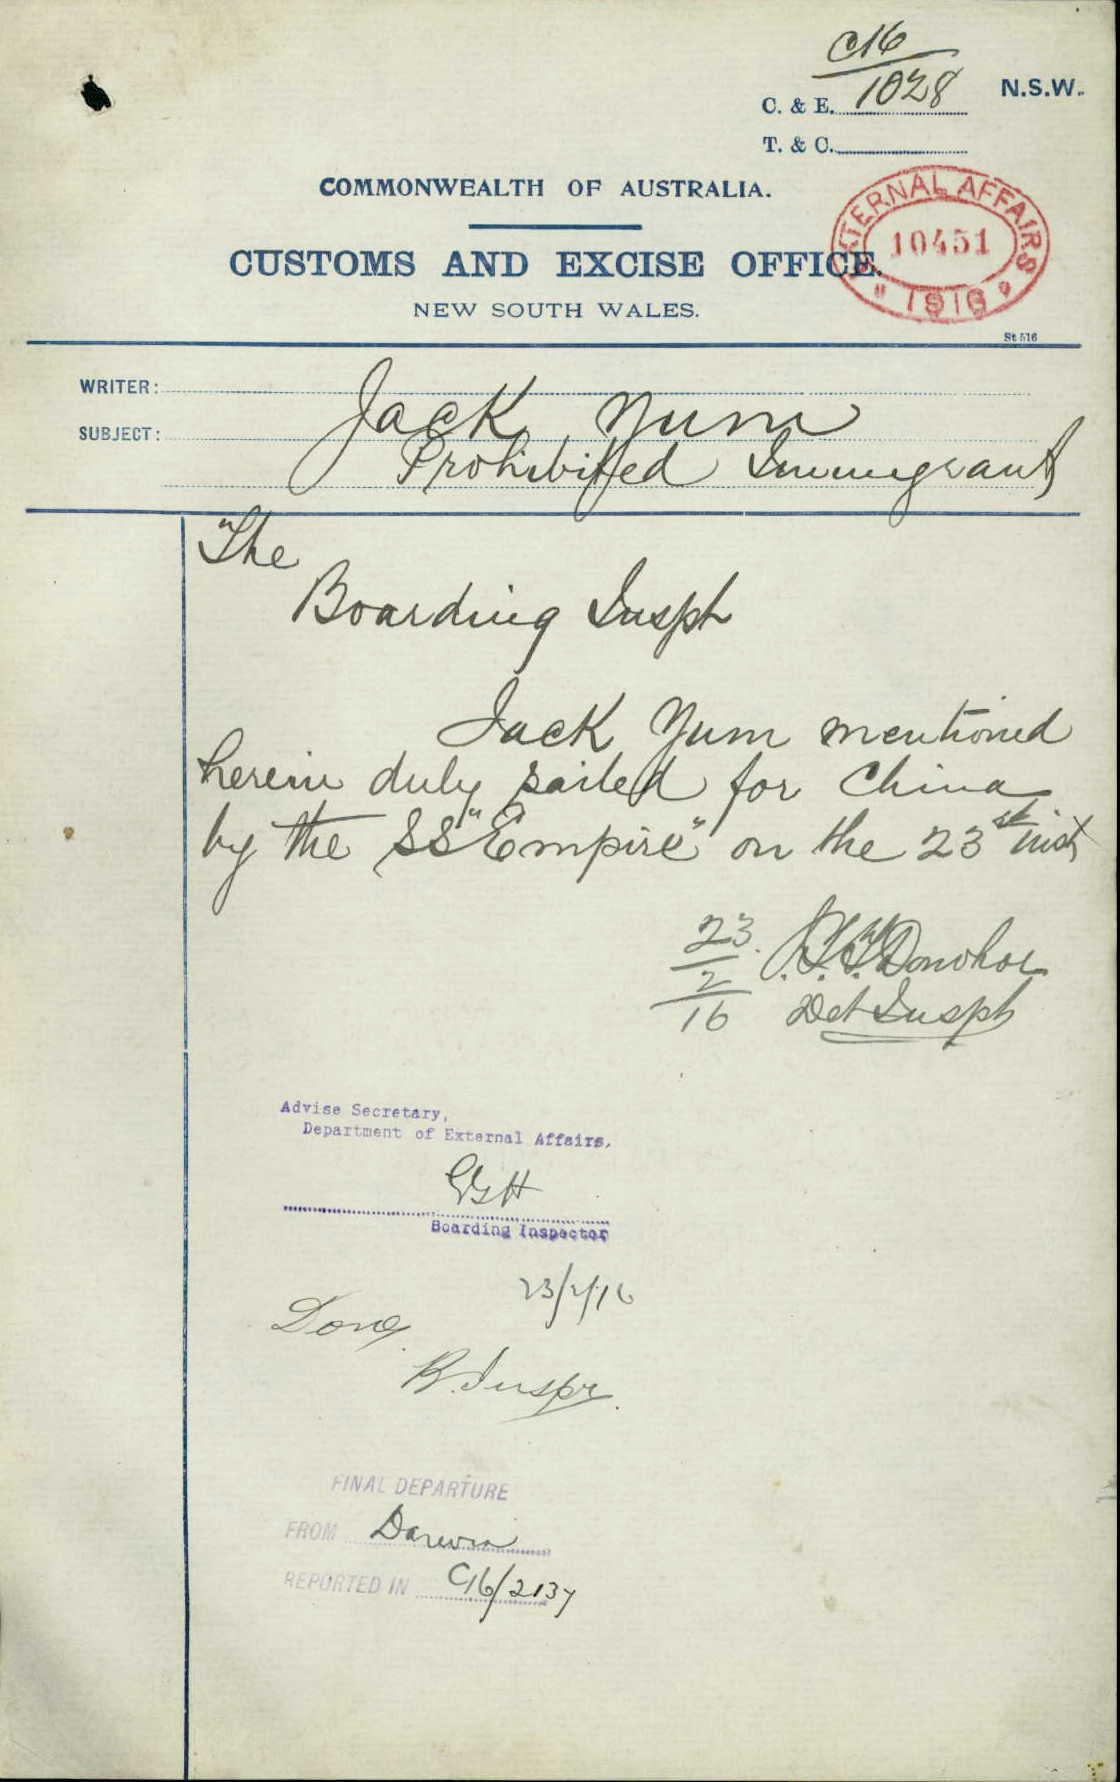 C16
C. & E. 1028 N.S.W.
T. & C.
COMMONWEALTH OF AUSTRALIA.
CUSTOMS AND EXCISE OFFICE.
NEW SOUTH WALES.
EXTERNAL AFFAIRS
10451
1916
St 516
WRITER:
SUBJECT: Jack Yum
Prohibited Immigrant
The
Boarding Inspt
Jack Yum mentioned
herein duly sailed for China
by the SS "Empire" on the 23st inst
23/2/16 Donohoe
Det Inspt
Advise Secretary,
Department of External Affairs.
Boarding Inspector
23/2/16
Done
B. Inspr
FINAL DEPARTURE
FROM Darwin
REPORTED IN C16/2137